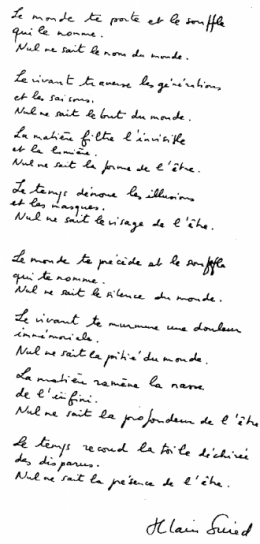 Le monde te porte et le souffle
qui le nomme.
Nul ne sait le nom du monde.
Le vivant traverse les générations
et les saisons.
Nul ne sait le but du monde.
La matière filtre l'invisible
et la lumière.
Nul ne sait la forme de l'être.
Le temps dénoue les illusions
et les masques.
Nul ne sait le visage de l'être.
Le monde te précède et le souffle
qui te nomme.
Nul ne sait le silence du monde.
Le vivant te murmure une douleur
immémoriale.
Nul ne sait la pitié du monde.
La matière ramène la nasse
de l'infini.
Nul ne sait la profondeur de l'être
Le temps recoud la toile déchirée
des disparus.
Nul ne sait la présence de l'être.
Alain Suied